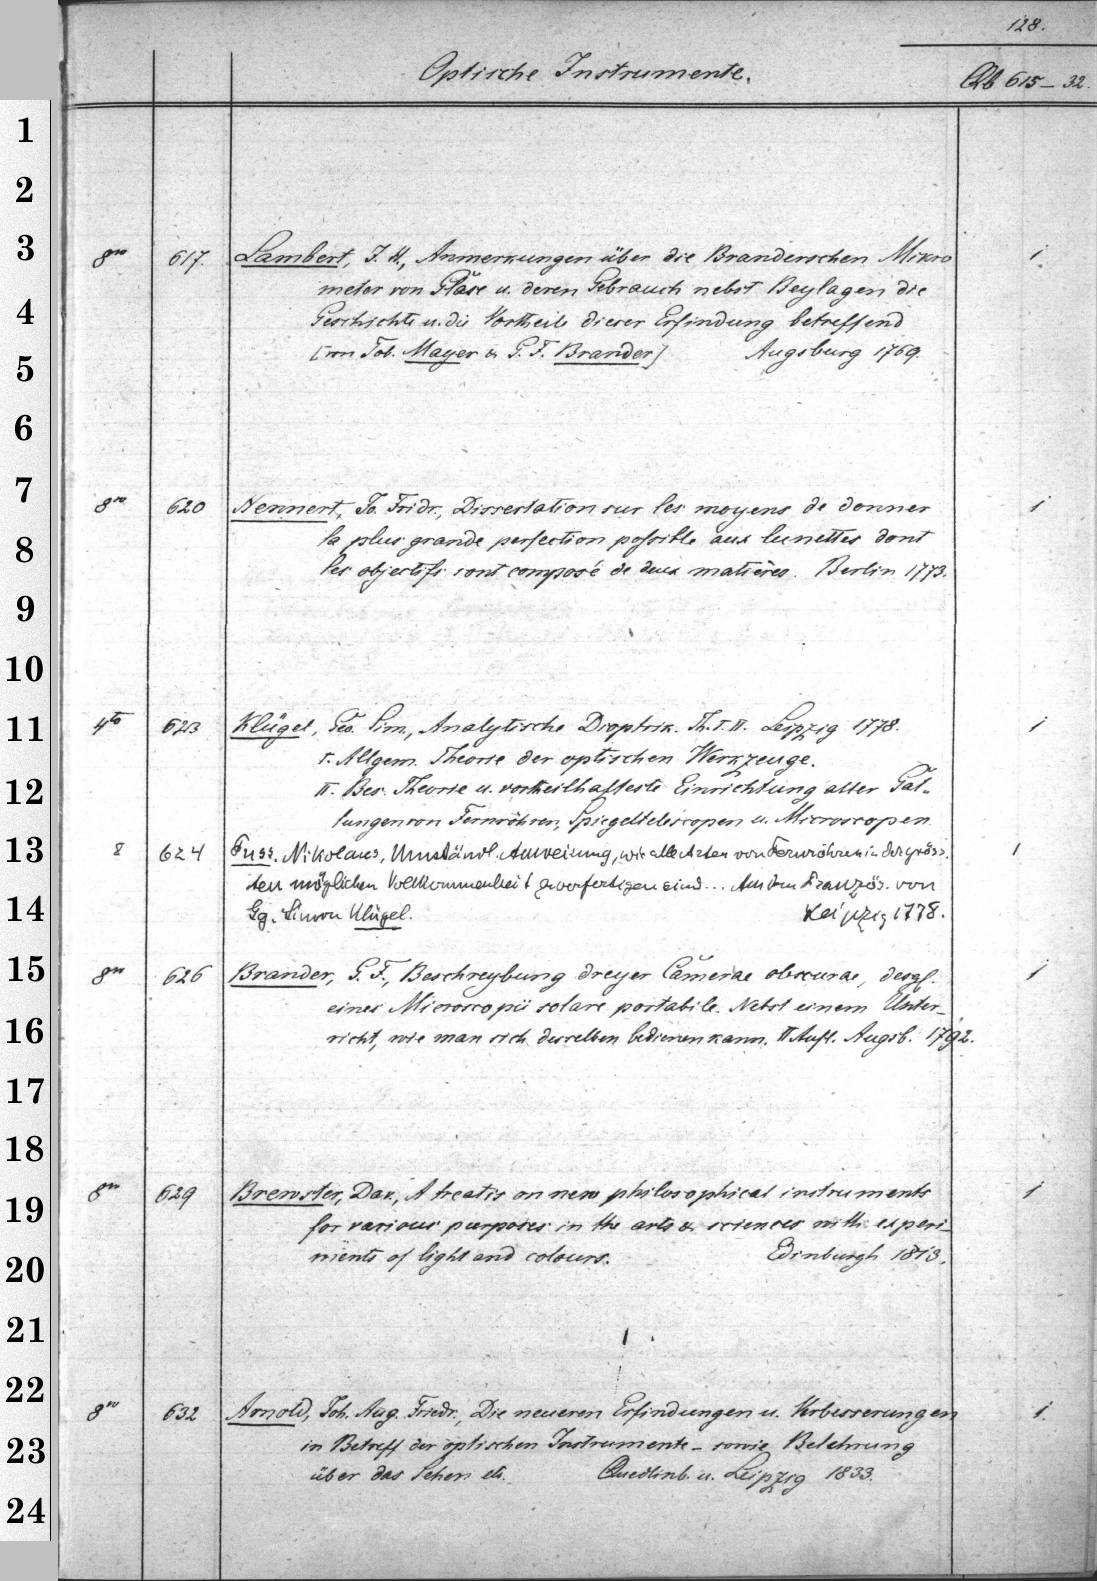 128.
Optische Instrumente.
Qb 615-32.
1
2
3
8vo 617. Lambert, J. H., Anmerkungen über die Branderschen Mikro 1
meter von Glase u. deren Gebrauch nebst Beylagen die
4
Geschichte u. die Vortheile dieser Erfindung betreffend
[von Tob. Mayer & G. F. Brander] Augsburg 1769.
5
6
7
8vo 620 Hennert, Jo. Fridr., Dissertation sur les moyens de donner 1
8
la plus grande perfection possible aux lunettes dont
les objectifs sont composé de deux matières. Berlin 1773.
9
10
11
4to 623 Klügel, Geo. Sim., Analytische Dioptrik. Th. I. II. Leipzig 1778. 1
I. Allgem. Theorie der optischen Werkzeuge.
12
II. Bes. Theorie u. vortheilhafteste Einrichtung aller Gat-
tungen von Fernröhren, Spiegeltelescopen u. Microscopen
13
8 624 Fuss. Nikolaus, Umständl. Anweisung, wie alle Arten von Fernröhren in der gröss- 1
ten möglichen Vollkommenheit zu verfertigen sind... Aus dem Französ. von
14
Gg. Simon Klügel. Leipzig 1778.
15
8vo 626 Brander, G. F., Beschreybung dreyer Camerae obscurae, desgl. 1
eines Microscopii solare portabile. Nebst einem Unter-
16
richt, wie man sich derselben bedienen kann. II Aufl. Augsb. 1792.
17
18
19
8vo 629 Brewster, Dav., A treatis on new philosophical instruments 1
for various purposes in the arts & sciences with experi-
20
ments of light and colours. Edinburgh 1813.
21
22
8vo 632 Arnold, Joh. Aug. Friedr., Die neueren Erfindungen u. Verbesserungen 1.
23
in Betreff der optischen Instrumente - sowie Belehrung
über das Sehen etc. Quedlinb. u. Leipzig 1833.
24